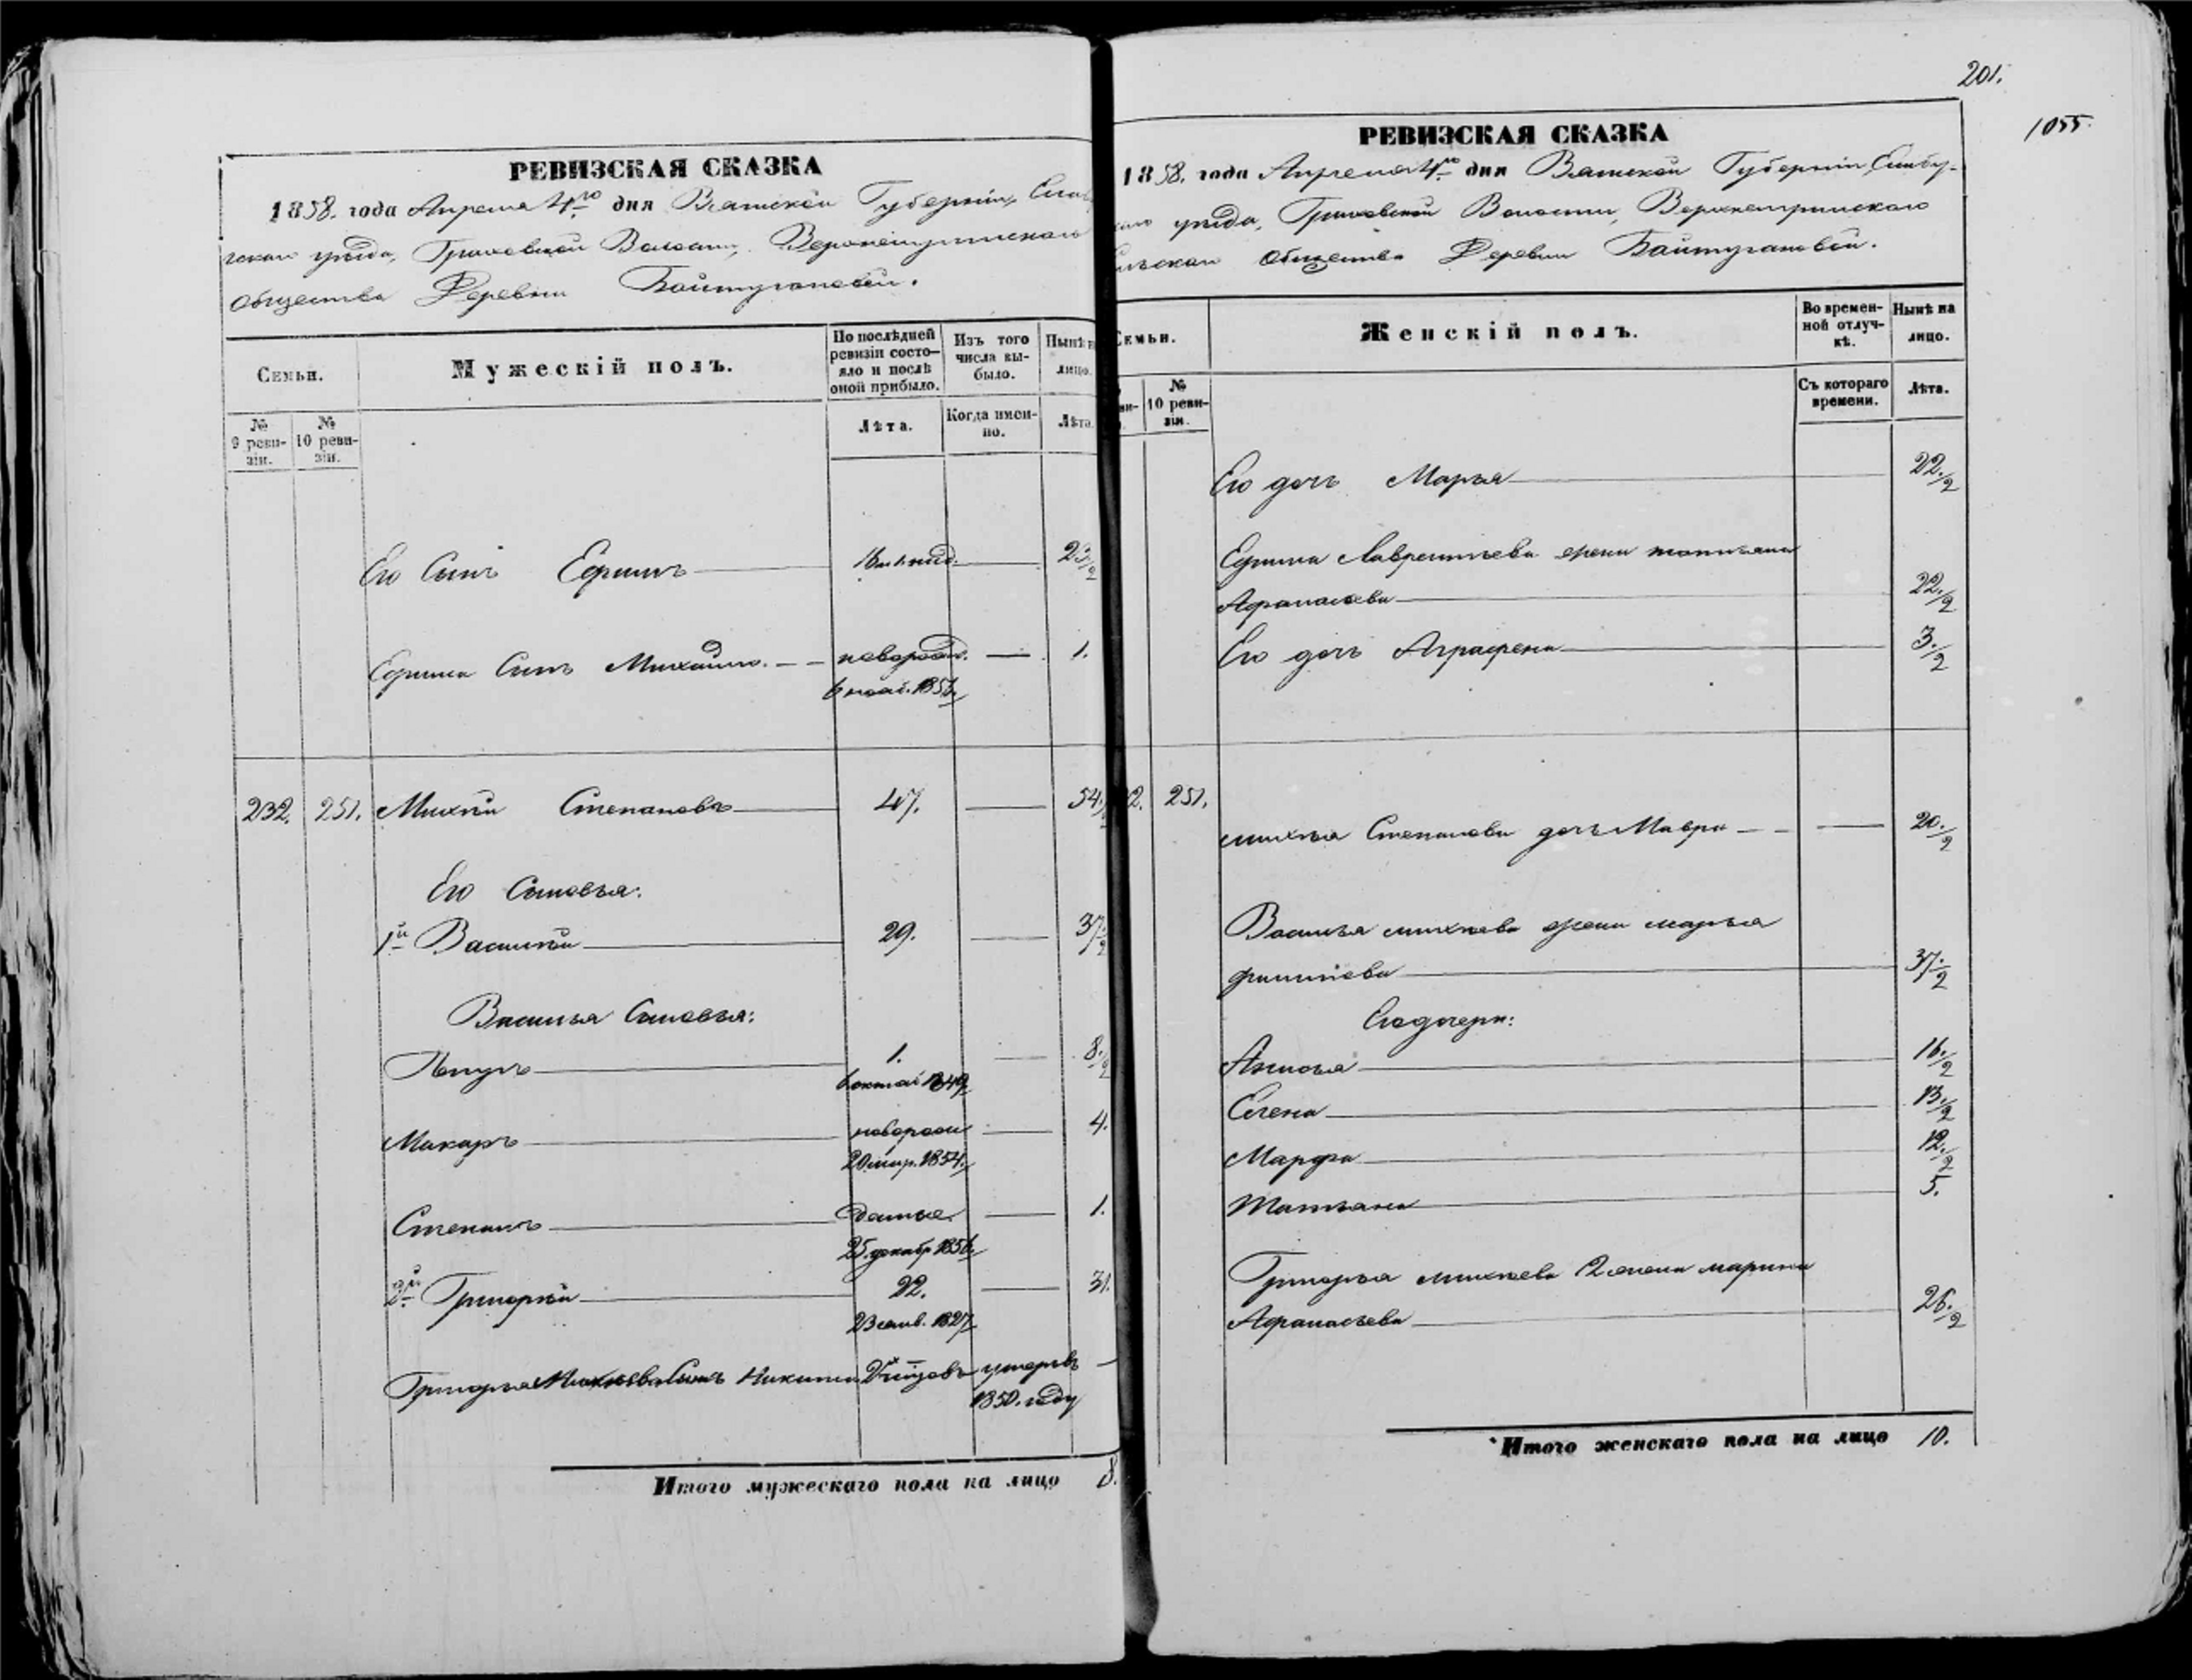 201.
1055.
РЕВИЗСКАЯ СКАЗКА
1858. года Апреля 4го дня Вятской Губерніи,
уѣзда, Волости,
общества Деревни Байтугановой.
Семьи.
Мужескій полъ.
По послѣдней ревизіи состо-
яло и послѣ оной прибыло.
Изъ того числа вы-
было.
Нынѣ
лицо.
№ 9 реви-
зіи.
№ 10 реви-
зіи.
Лѣта.
Когда имен-
но.
Лѣта.
Его Сынъ Ефимъ 23 1/2
Ефима Сынъ Михайло. новорожд. 1.
232. 251. Михѣй Степановъ 47. 54.
Его Сыновья:
1й Василій 29. 37. 1/2
Василья Сыновья:
1. 8. 1/2
1849
Макаръ новорож 4.
20 1854.
Степанъ тоже 1.
25 декабр 1856.
2й Григорій 22. 31.
23 1827
Григорья Михѣева Сынъ Никита умеръ
1850. году
Итого мужескаго пола на лицо 8.
РЕВИЗСКАЯ СКАЗКА
1858. года Апреля 4го дня Вятской Губерніи,
уѣзда, Волости,
общества Деревни Байтугановой.
Семьи.
Женскій полъ.
Во времен-
ной отлуч-
кѣ.
Нынѣ на
лицо.
№
10 реви-
зіи.
Съ котораго
времени.
Лѣта.
Его дочь Марья 22. 1/2
Ефима Лаврентьева жена Татьяна
Афанасьева 22. 1/2
Его дочь Аграфена 3. 1/2
2. 251.
Михѣя Степанова дочь Мавра 20. 1/2
Василья Михѣева жена Марья
37. 1/2
Его дочери:
16. 1/2
Елена 13. 1/2
Марфа 12. 1/2
Татьяна 5.
Григорья Михѣева 2 жена Марина
Афанасьева 26. 1/2
Итого женскаго пола на лицо 10.